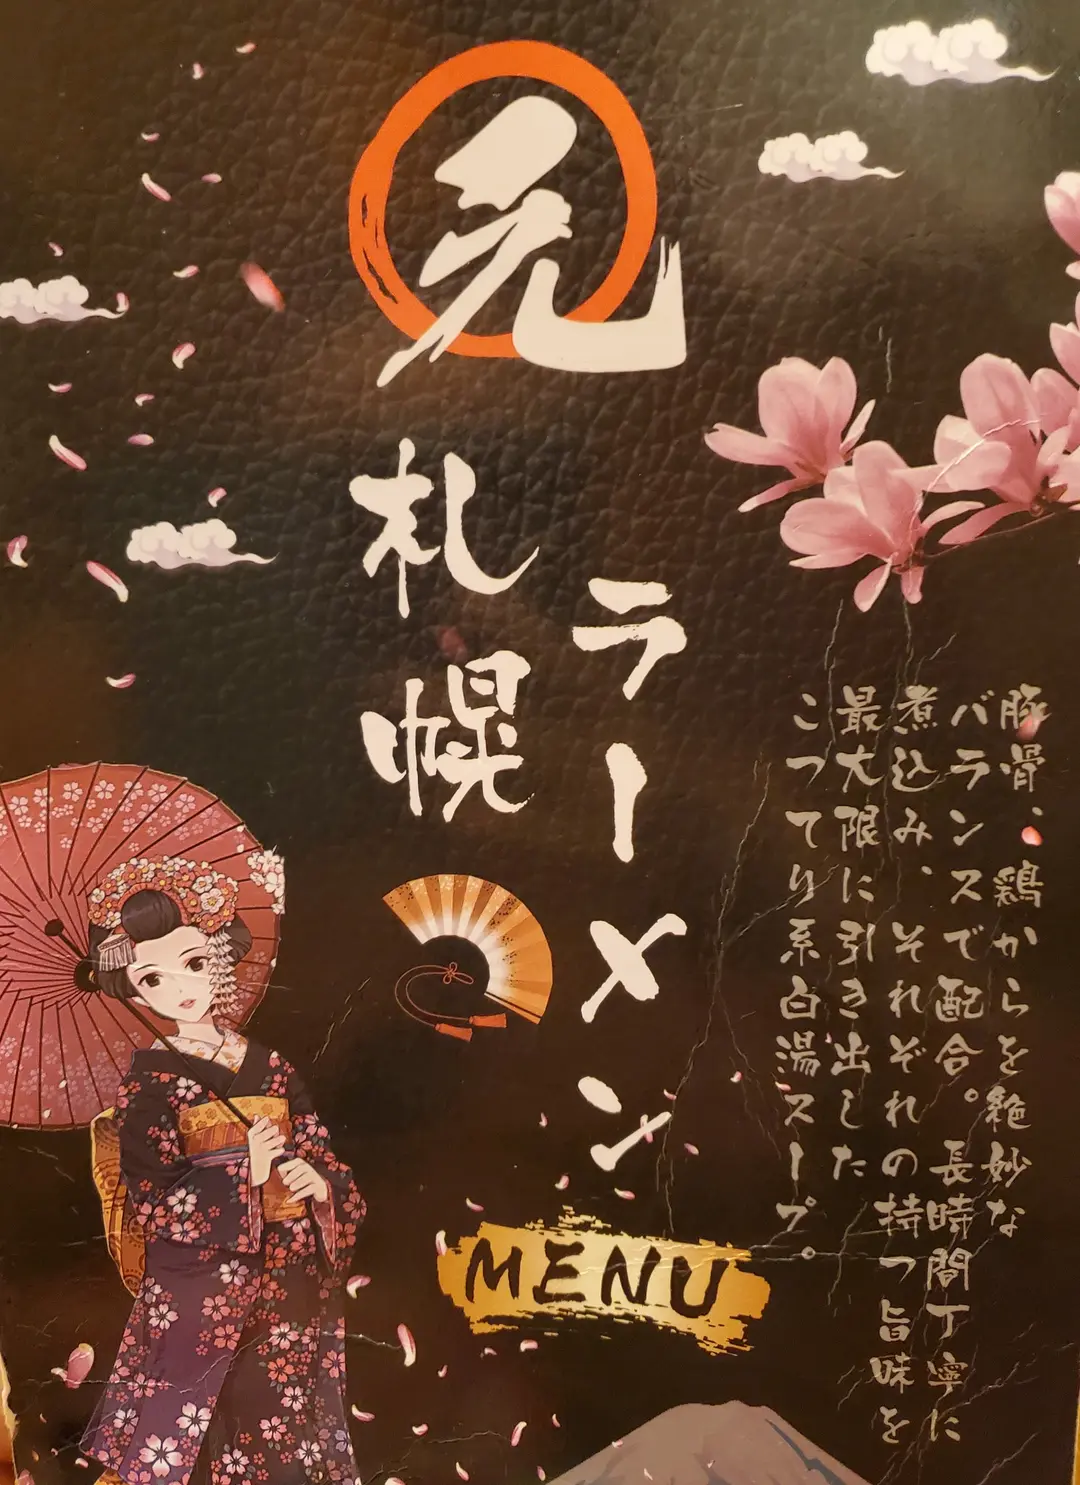 元
札幌
ラーメン
MENU
豚骨、鶏からを絶妙な
バランスで配合。長時間丁寧に
煮込み、それぞれの持つ旨味を
最大限に引き出した
こってり系白湯スープ。